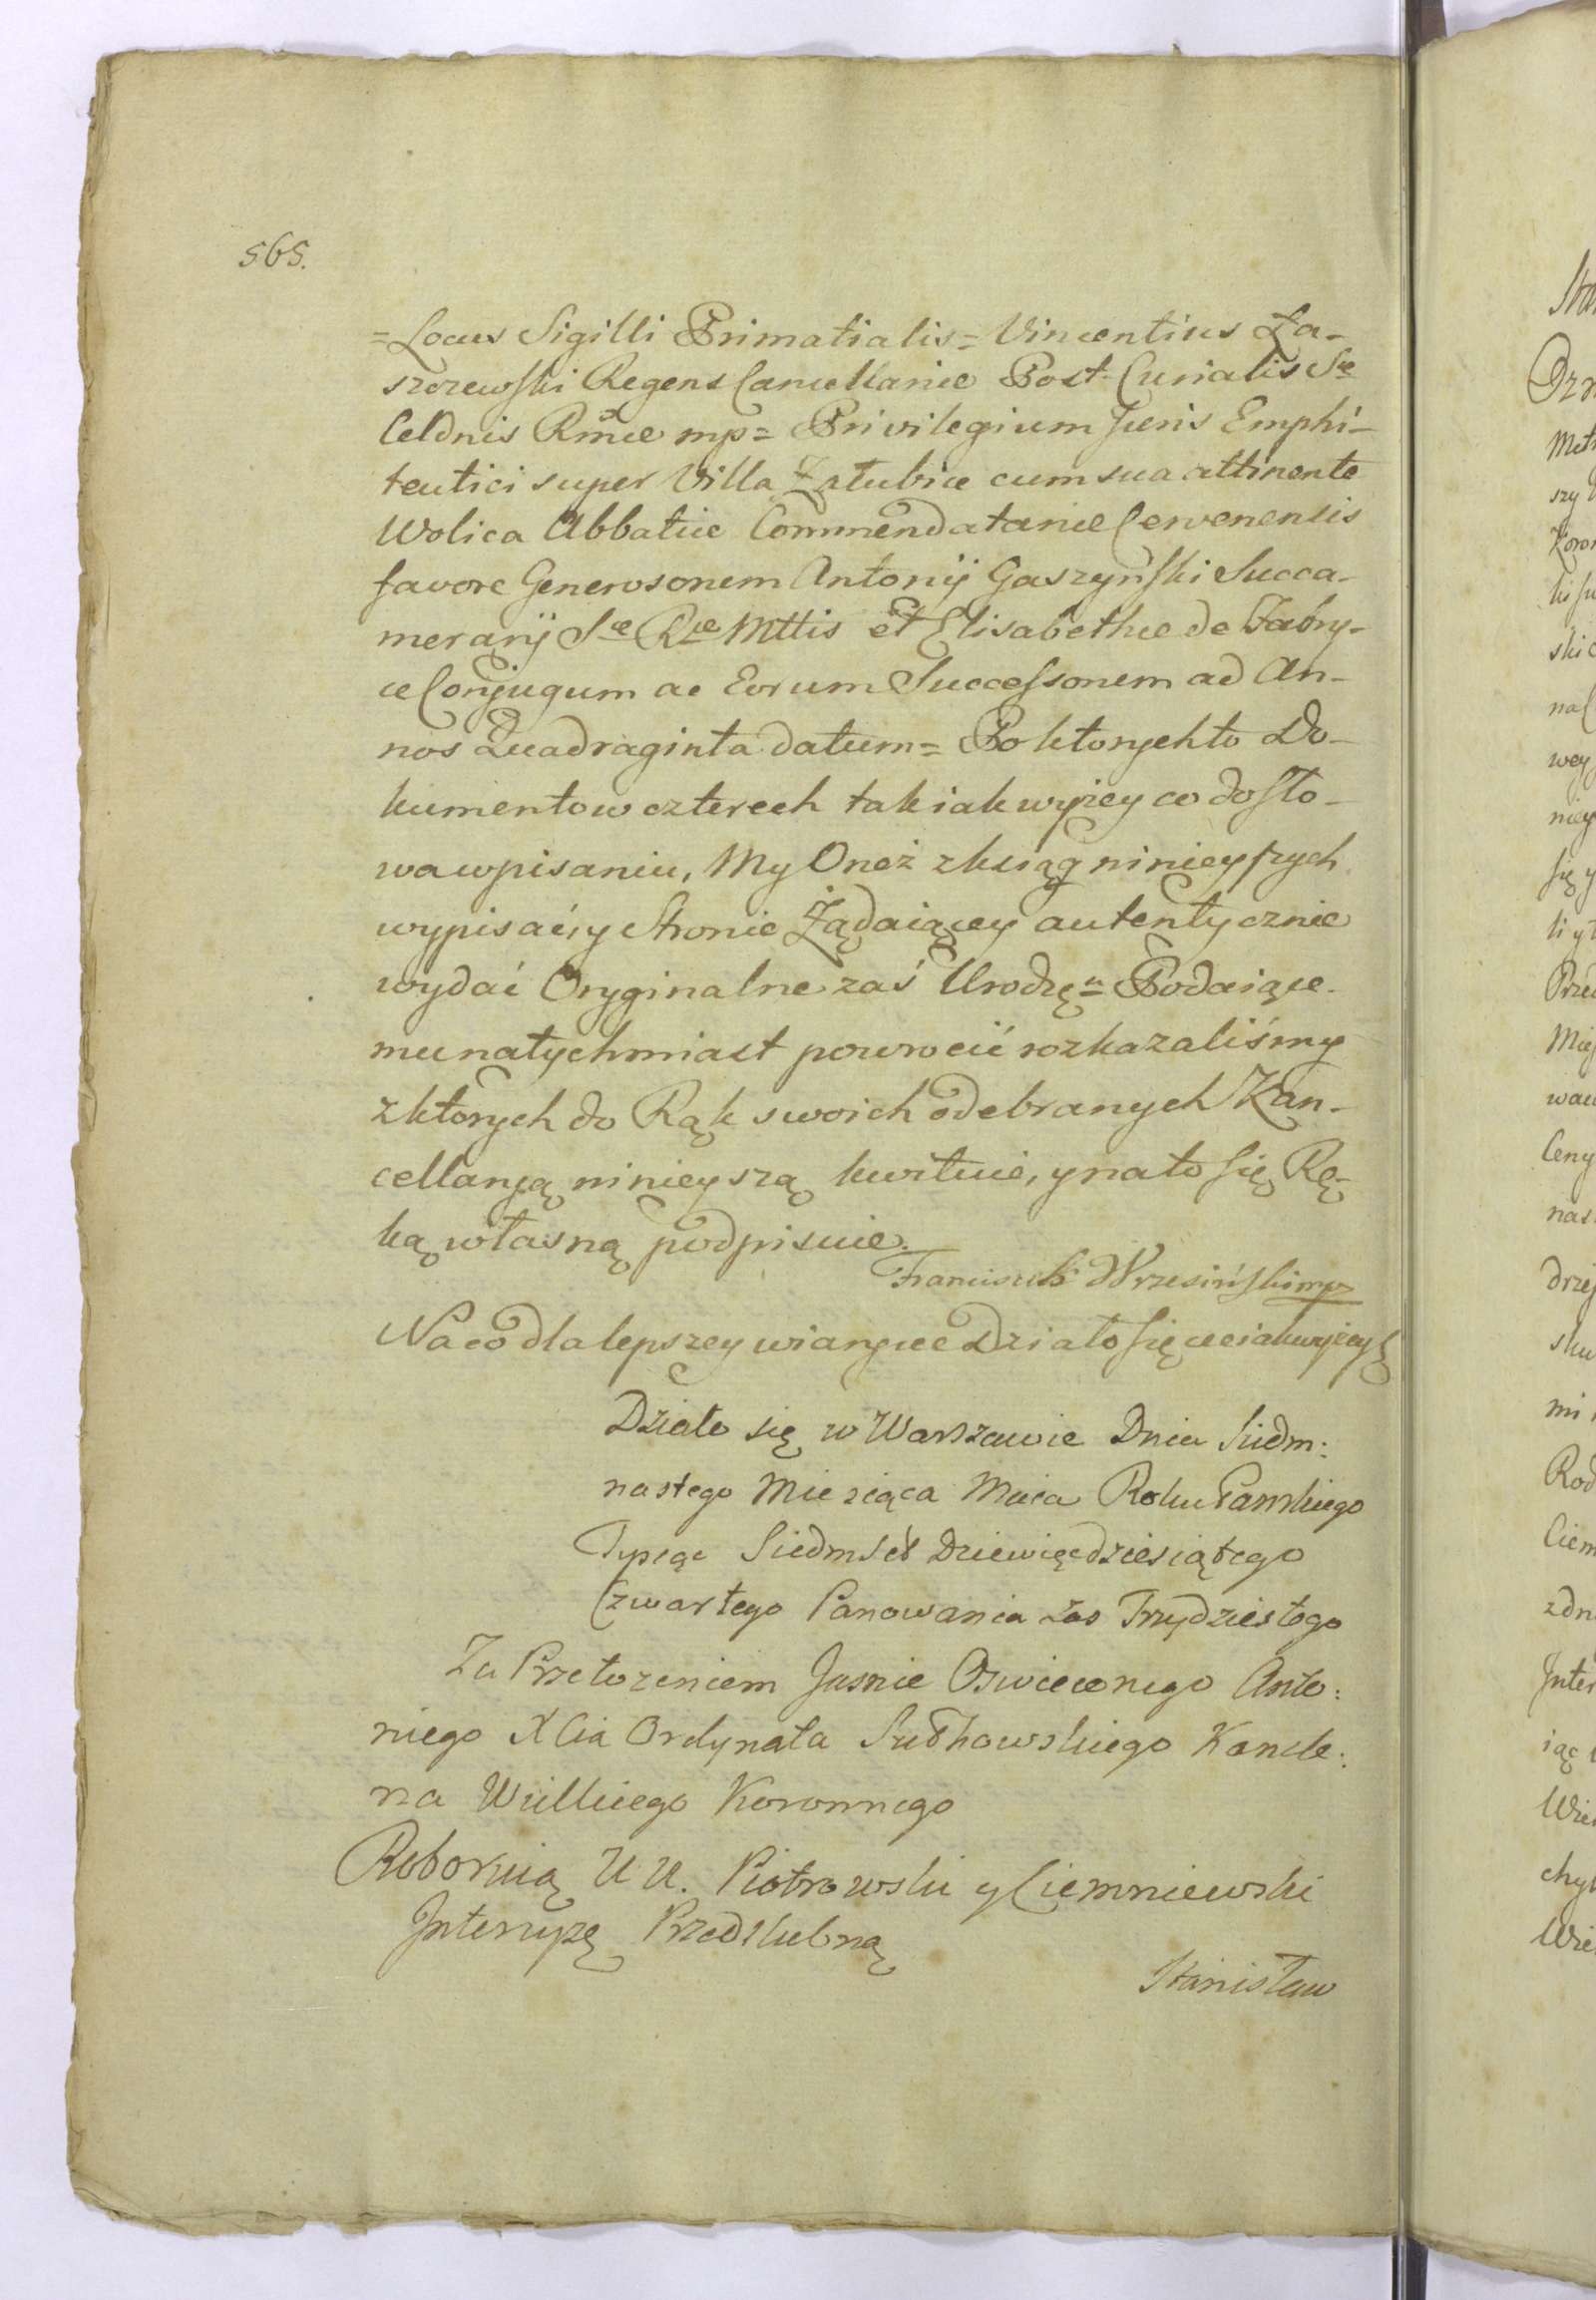 565.
=Locus Sigilli Primatialis= Vincentius Ła-
szczewski Regens Cancellariæ Post-Curialis Sæ
Celdnis Rmæ mp= Privilegium Juris Emphi-
teutici super Villa Załubice cum sua attinente
Wolica Abbatiæ Commendatariæ Cervenensis
favore Generosorum Antonij Gaszyński Succa-
merarij Sæ Ræ Mttis et Elisabethæ de Fabry-
ce Conjugum ac Eorum Successorum ad An-
nos Quadraginta datum= Po ktorychto Do-
kumentow czterech tak iak wyżey co do sło-
wa wpisaniu, My Oneż z ksiąg ninieyszych
wypisać, y Stronie Żądaiącey autentycznie
wydać Oryginalne zaś Urodzen= Podaiące-
mu natychmiast powrocić rozkazaliśmy
z ktorych do Rąk swoich odebranych Kan-
cellaryą ninieyszą kwituie, y na to się Rę-
ką własną podpisuie.
Franciszek Wrzesiński mp
Na co dla lepszey wiary etc Działo się etc iak wyżey
Działo się w Warszawie Dnia Siedm:
nastego Miesiąca Maia Roku Pańskiego
Tysiąc Siedmset Dziewięcdziesiątego
Czwartego Panowania zas Trzydziestego
Za Przełożeniem Jasnie Oswieconego Anto:
niego XCia Ordynata Sułkowskiego Kancle:
rza Wielkiego Koronnego
Roboruią U U. Piotrowski y Ciemniewski
Intercyzę Przedslubną
Stanisław